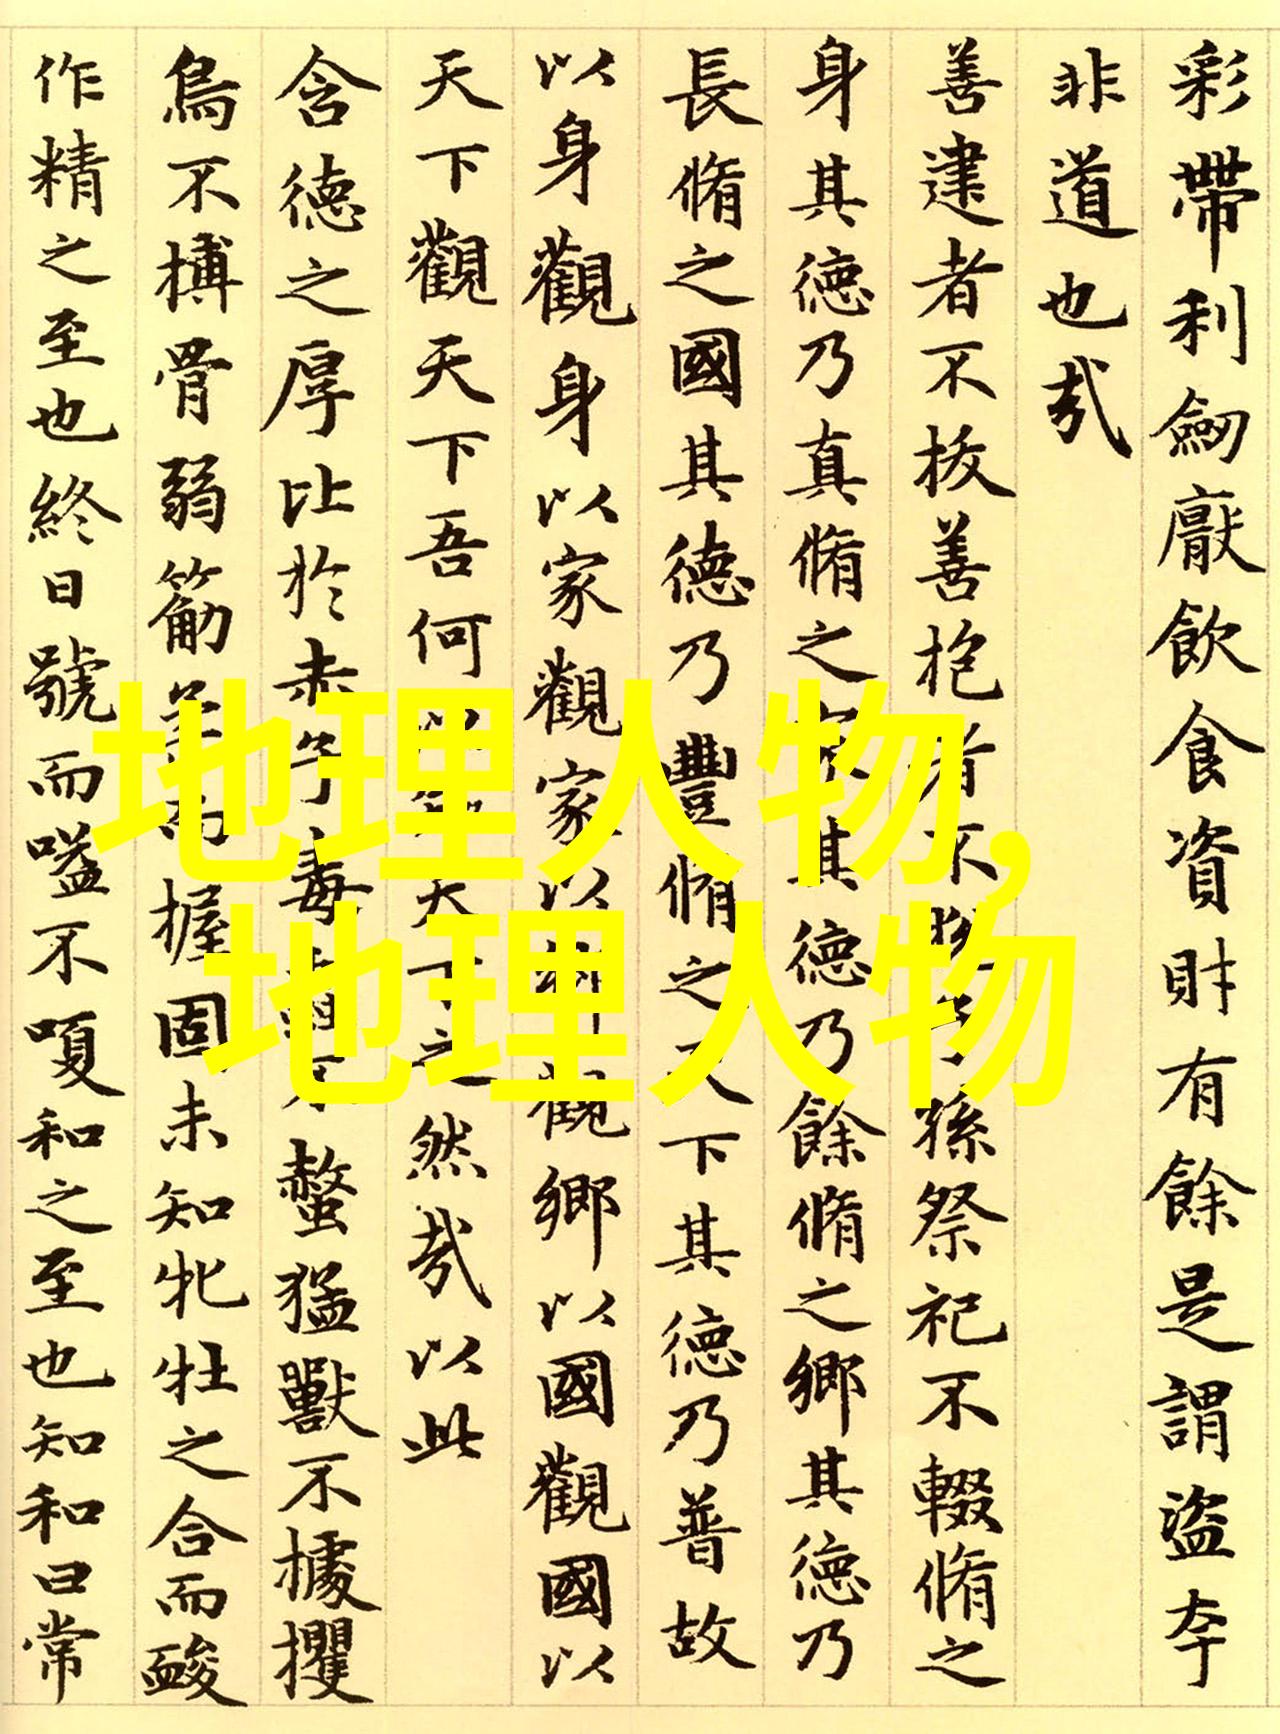 彩帶利劒厭飲食資財有餘是謂盜夸
非道也哉
善建者不拔善抱者不脫子孫祭祀不輟脩之
身其德乃真脩之家其德乃餘脩之鄉其德乃
長脩之國其德乃豐脩之天下其德乃普故
以身觀身以家觀家以鄉觀鄉以國觀國以
天下觀天下吾何以知天下之然哉以此
含德之厚比於赤子毒蟲不螫猛獸不據攫
鳥不搏骨弱筋柔而握固未知牝牡之合而䘒
作精之至也終日號而嗌不嗄和之至也知和曰常
地理人物,
地理人物